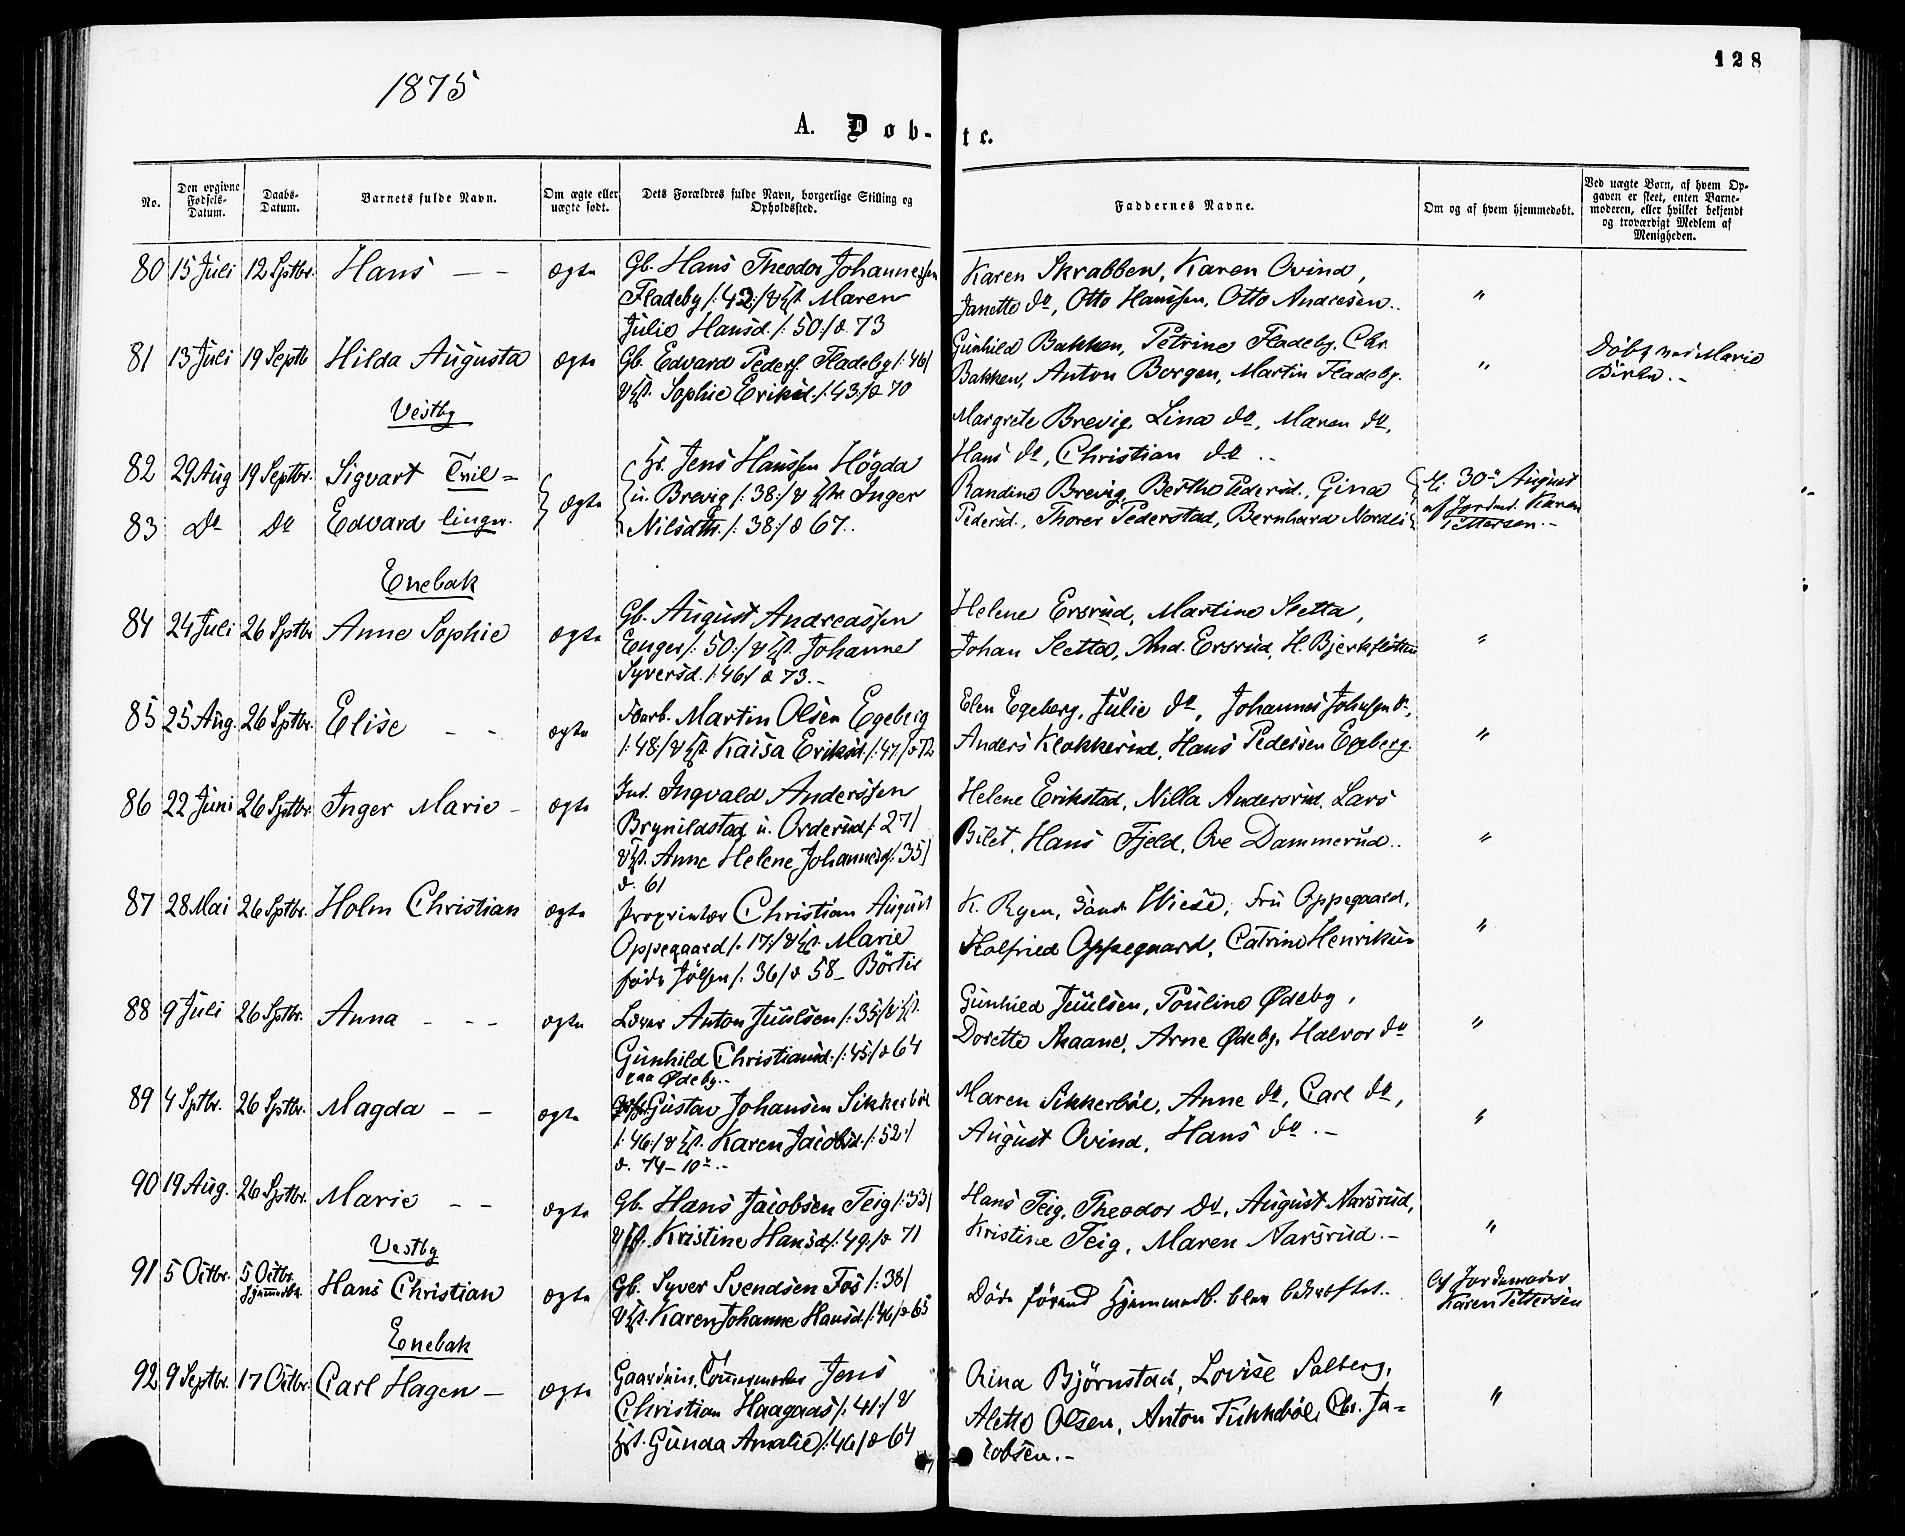 1875
128
A. Døb-te.
No.
Den opgivne Fødsels-Datum.
Daabs-Datum.
Barnets fulde Navn.
Om ægte eller uægte født.
Dets Forældres fulde Navn, borgerlige Stilling og Opholdssted.
Faddernes Navne.
Om og af hvem hjemmedøbt.
Ved uægte Børn, af hvem Op-
gaven er skeet, enten Barne-
moderen, eller hvilket bekjendt
og troværdigt Medlem af
Menigheden.
80 15 Juli 12 Sptbr. Hans - - ægte
Gb. Hans Theodor Johannessen
Fladeby /: 42:/ & Hst. Maren
Julie Hansd. /: 50:/ d. 73
Karen Skrabben, Karen Ovind,
Janette do, Otto Hanssen, Otto Andresen.. "
81 13 Juli 19 Septb Hilda Augusta ægte
Gb. Edvard Peders. Fladeby /: 46/
& Hst. Sophie Eriksd. /: 43:/ d 70
Gunhild Bakken, Petrine Fladeby, Chr.
Bakken, Anton Borgen, Martin Fladeby. "
Vestby
82 29 Aug 19 Septbr. Sigvart Tvil-
83 do do Edvard linger. ægte
Hr. Jens Hanssen Högda
u. Brevig /: 38:/ & Hst. Inger
Nilsdtr. /: 38/ d 67..
Margrete Brevig, Lina do, Maren do,
Hans do, Christian do ..
Randine Brevig, Berthe Pedersd., Gina
Pedersd., Thorer Pederstad, Bernhard Nordli
30te August
af Jordmd. Karen
Pettersen.-
Enebak
84 24 Juli 26 Sptbr Anne Sophie ægte
Gb. August Andreassen
Enger /: 50:/ & Hst. Johanne
Syversd. /: 46/ d 73.-
Helene Ersrud, Martine Sletta,
Johan Sletta, And. Ersrud, H. Bjerkflötten "
85 25 Aug. 26 Sptbr. Elise - - ægte
Martin Olsen Egeberg
/: 48:/ & Hst. Kaisa Eriksd. /: 47/ d 72
Elen Egeberg, Julie do, Johannes Johnsen do,
Anders Klokkerud, Hans Pedersen Egeberg. "
86 22 Juni 26 Sptbr. Inger Marie - ægte
Ind. Ingvald Anderssen
Brynildstad u. Orderud /: 27/
& Hst. Anne Helene Johannesd /: 35/
d. 61
Helene Erikstad, Nilla Andersrud, Lars
Bilet, Hans Fjeld, Ove Dammerud.. "
87 28 Mai 26 Sptbr. Holm Christian ægte
Proprietær Christian August
Oppegaard /: 17:/ & Hst. Marie
föde Jölsen /: 36/ d 58 - Börter
K. Ryen, Wiese, Fru Oppegaard,
Halfried Oppegaard, Catrine Henriksen "
88 9 Juli 26 Sptbr. Anna - - - ægte
Lærer Anton Juulsen /: 35:/ & Hst.
Gunhild Christiansd. /: 45/ d 64
paa Ødeby..
Gunhild Juulsen, Pouline Ødeby,
Dorette Maane, Arne Ødeby, Halvor do "
89 4 Sptbr. 26 Sptbr. Magda - - ægte
Gustav Johansen Sikkerböl
/: 46:/ & Hst. Karen Jacobsd. /: 52:/
d. 74 - 10de..
Maren Sikkerböl, Anne do, Carl do,
August Ovind, Hans do .- "
90 19 Aug. 26 Sptbr. Marie - - ægte
Gb. Hans Jacobsen Teig /: 33/
& Hst. Kristine Hansd /: 49:/ d 71
Hans Teig, Theodor do, August Narsrud,
Kristine Teig, Maren Narsrud.- "
Vestby
91 5 Octbr. 5 Octbr. Hjemmedbt. Hans Christian ægte
Gb. Syver Svendsen Fos /: 38/
& Hst. Karen Johanne Hansd. /: 46/ d 65
Döde förend Hjemmedb. blev bekræftet..
Af Jordemoder
Karen Pettersen
Enebak
92 9 Septbr. 17 Octbr. Carl Hagen - ægte
Gaardmin. Jens
Christian Haagaas /: 41:/ &
Hst. Gunda Amalie /: 46/ d 64
Rina Björnstad, Lovise Solberg,
Alette Olsen, Anton Tukkeböl, Chr. Ja-
cobsen.- "
Döbg ved Marie